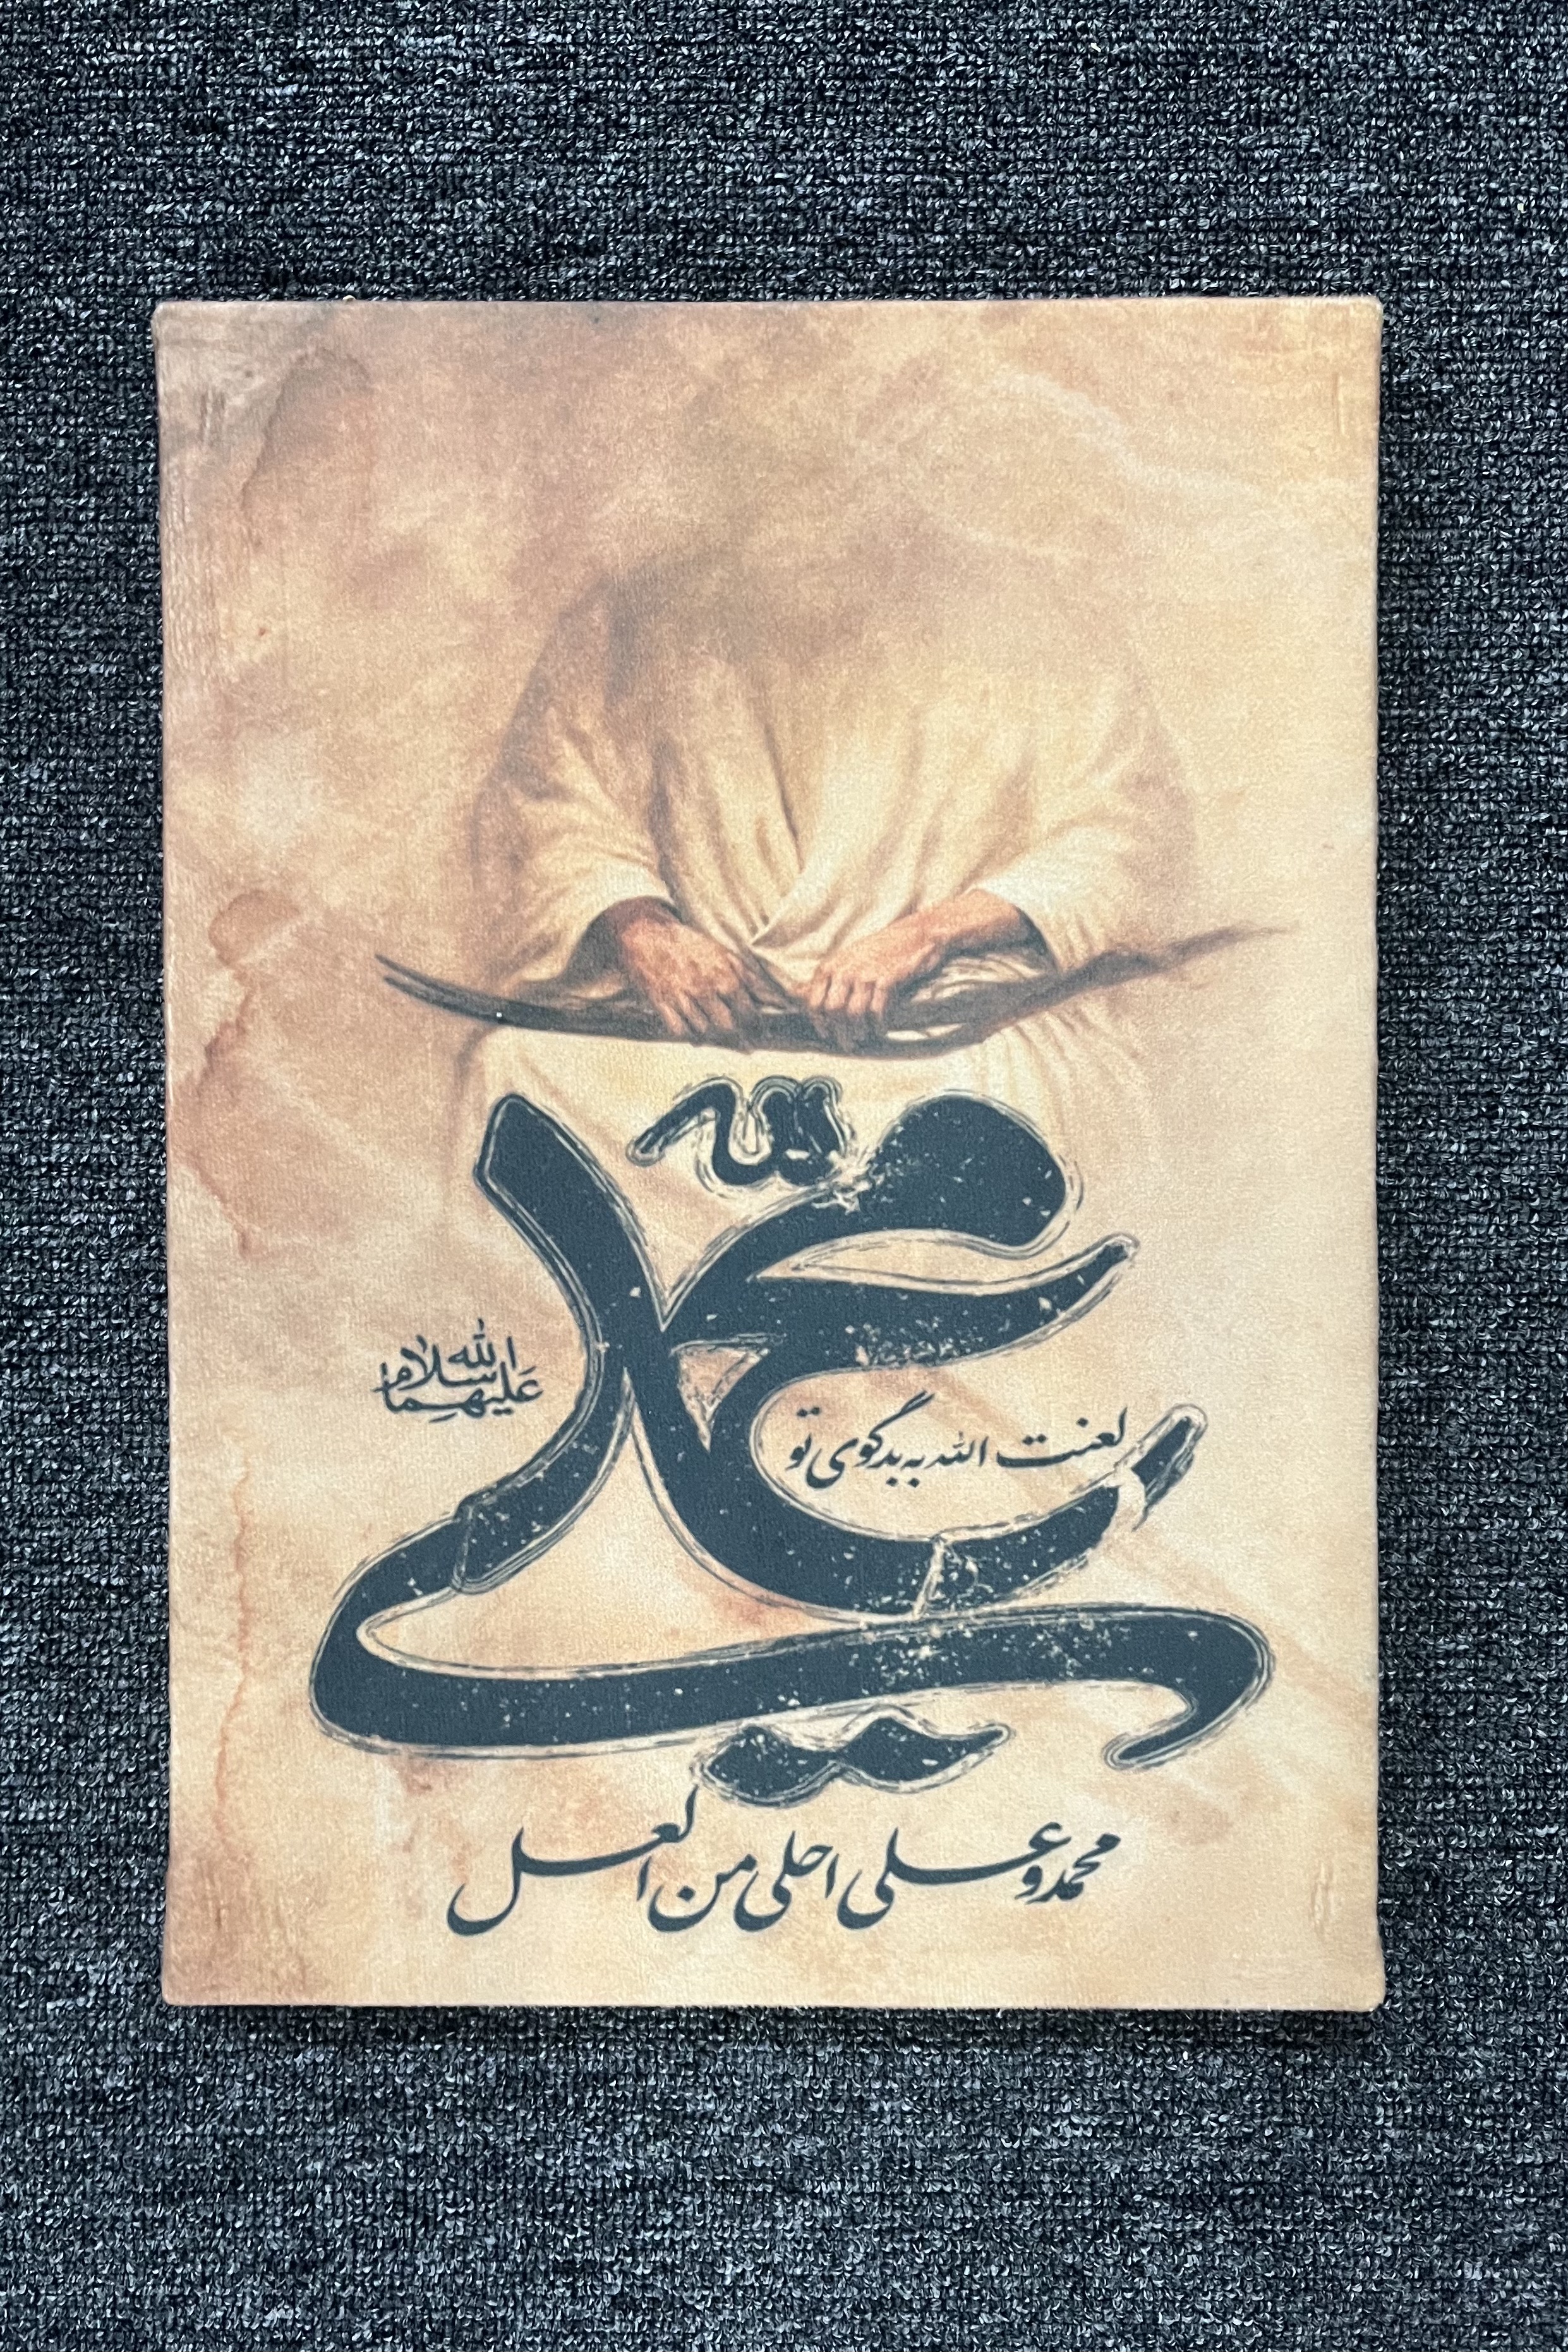 الله
علی
سلام الله
علیهما
لعنت الله به بدگوی تو
محمد و علی احلی من العسل